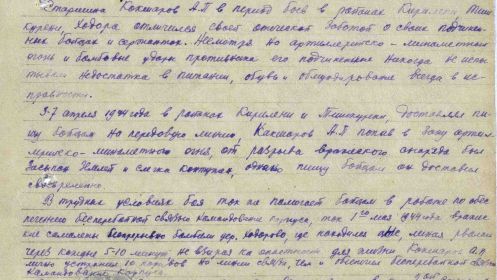 Старшина Кокшаров А.П в период боев в районах Кирилени Тиш
курени, Ходора отличился своей отеческой заботой о своих подчинен
ных бойцах и сержантах. Несмотря на артиллерийско-минометный
огонь и бомбовые удары противника его подчиненные никогда не испы
тывали недостатка в питании, обувь и обмундирование всегда в ис
правности.
3-7 апреля 1944 года в районах Кирилени и Тишкурени, доставляя пи
щу бойцам на передовую линию, Кокшаров А.П попав в зону артил
лерийско-минометного огня, от разрыва вражеского снаряда был
засыпан землей и слегка контужен, однако пищу бойцам он доставил
своевременно.
В трудных условиях боя так же помогает бойцам в работе по обес
печению бесперебойной связью командования корпуса, так 1го мая 1944 года враже
ские самолеты беспрерывно бомбили дер. Ходорово, где находился линия рвалась
через каждые 5-10 минут не взирая на опасность для жизни. Кокшаров А.П.
лично устранял на линии связи, чем и обеспечил бесперебойной связью
командование корпуса.